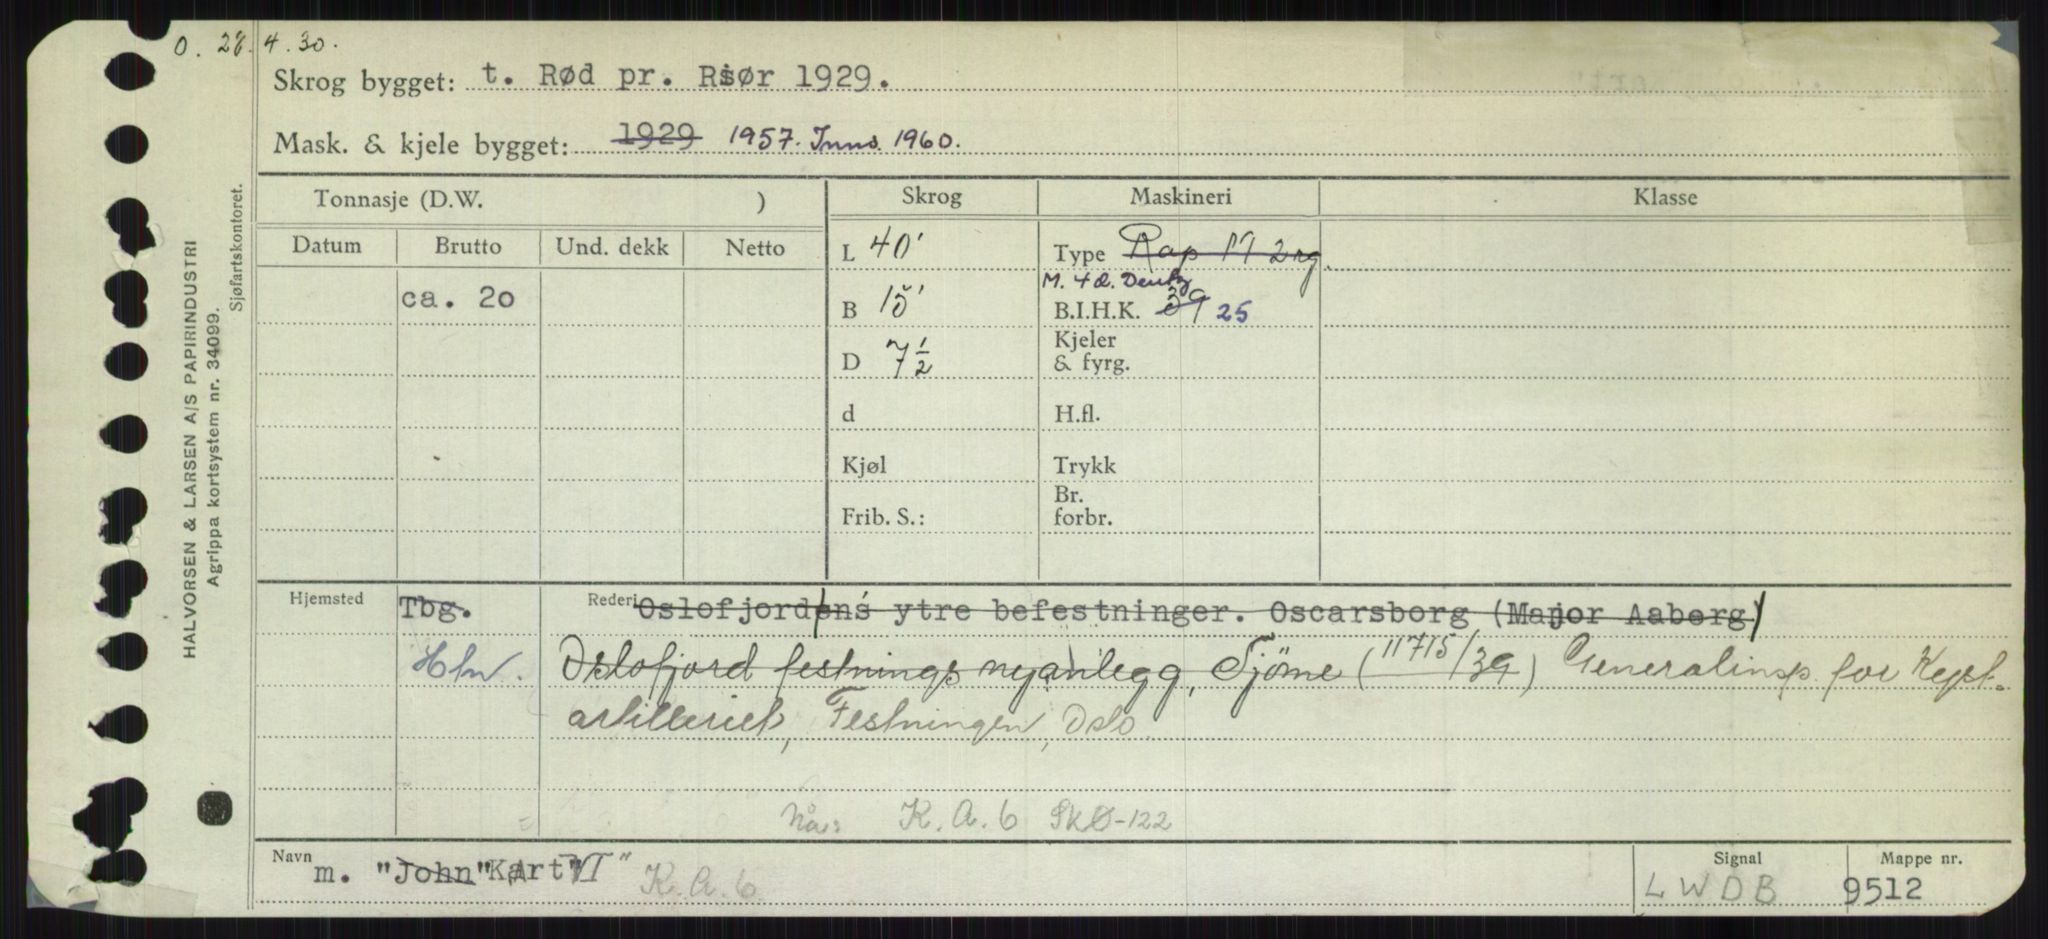 O. 28.4.30.
Skrog bygget: t. Rød pr. Risør 1929.
Mask. & kjele bygget: 1929 1957. Inns. 1960.
Tonnasje (D.W. )
Skrog
Maskineri
Klasse
Datum
Brutto
Und. dekk
Netto
L 40'
Type Rap M 2
M. 4 d. Deutz
ca. 20
B 15'
B.I.H.K. 39 25
D 7 1/2'
Kjeler
& fyrg.
d
H.fl.
Kjøl
Trykk
Frib. S.:
Br.
forbr.
Hjemsted Tbg.
Rederi Oslofjordens ytre befestninger. Oscarsborg (Major Aaberg)
Hln. Oslofjord festnings nyanlegg, Tjöme (11715/39) Generalinsp. for Kyst-
artilleriet, Festningen, Oslo
Nå: K.A.6 SKØ-122
Navn m. "John" "Kart VI" K.A.6
Signal LWDB
Mappe nr. 9512
HALVORSEN & LARSEN A/S PAPIRINDUSTRI
Agrippa kortsystem nr. 34099.
Sjøfartskontoret.